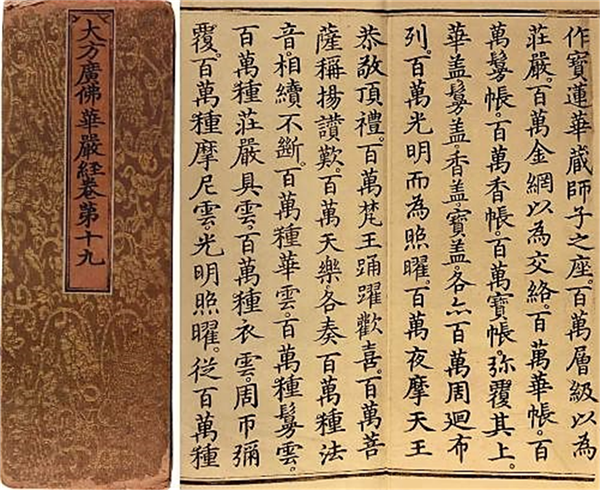 大方廣佛華嚴經卷第十九
作寶蓮華藏師子之座。百萬層級以為
莊嚴。百萬金網以為交絡。百萬華帳。百
萬鬘帳。百萬香帳。百萬寶帳。弥覆其上。
華盖鬘盖。香盖。寶盖。各亦百萬周迴布
列。百萬光明而為照曜。百萬夜摩天王
恭敬頂禮。百萬梵王踊躍歡喜。百萬菩
薩稱揚讚歎。百萬天樂各奏百萬種法
音相續不斷。百萬種華雲。百萬種鬘雲。
百萬種莊嚴具雲。百萬種衣雲。周帀彌
覆。百萬種摩尼雲。光明照曜。從百萬種